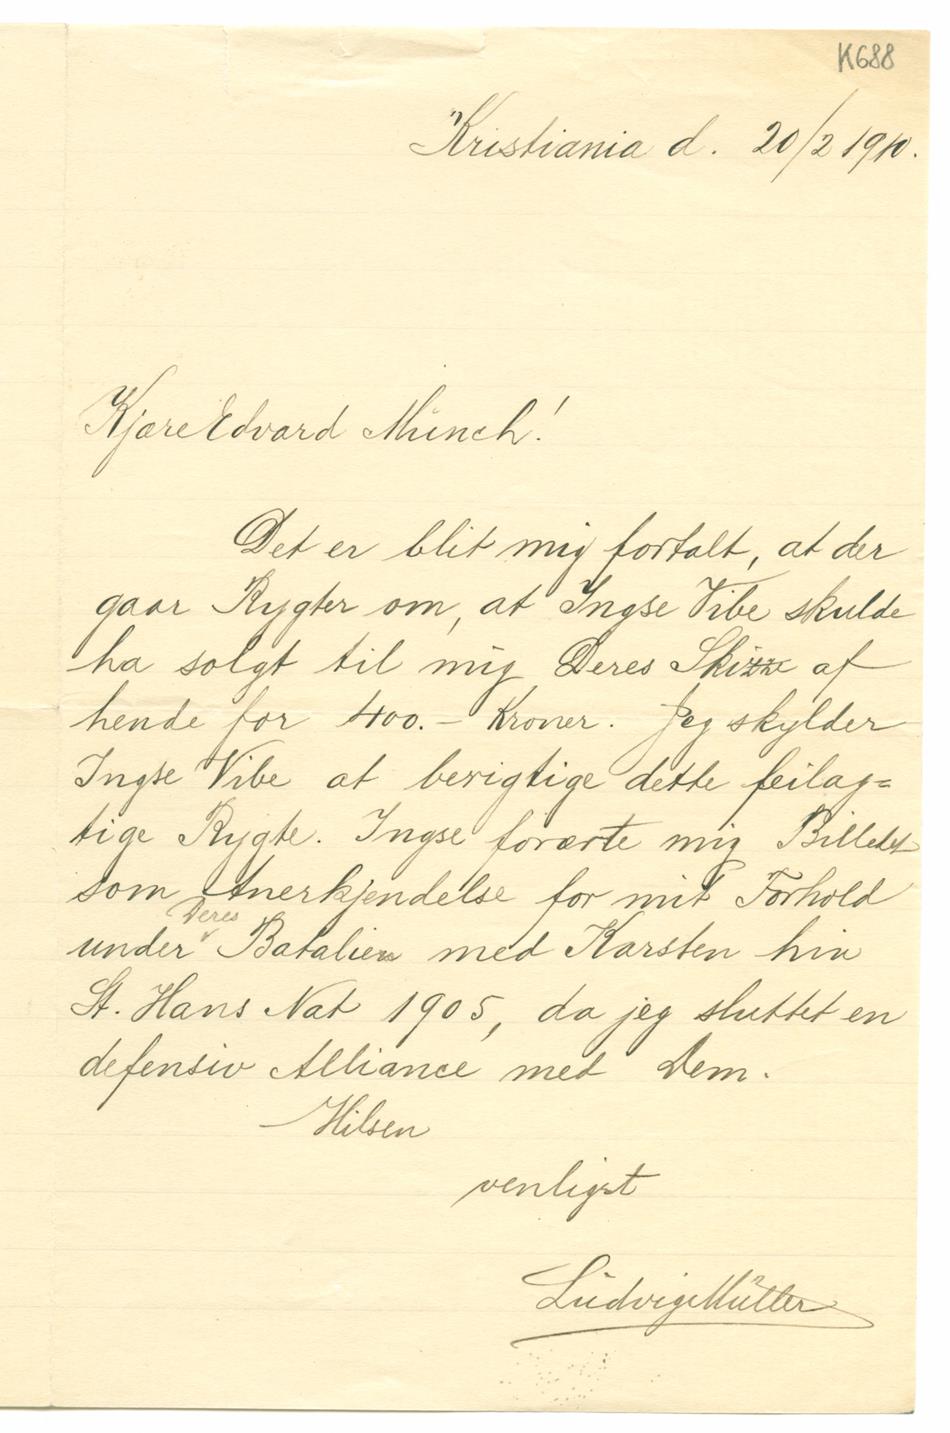 K688
Kristiania d. 20/2 1910.
Kjære Edvard Münch!
Det er blit mig fortalt, at der
gaar Rygter om, at Ingse Vibe skulde
ha solgt til mig Deres Skizze af
hende for 400.- Kroner. Jeg skylder
Ingse Vibe at berigtige dette feilag=
tige Rygte. Ingse forærte mig Billedet
som Anerkjendelse for mit Forhold
Deres
under Batalien med Karsten hin
St. Hans Nat 1905, da jeg sluttet en
defensiv Alliance med Dem.
Hilsen
venligst
Ludvig Müller